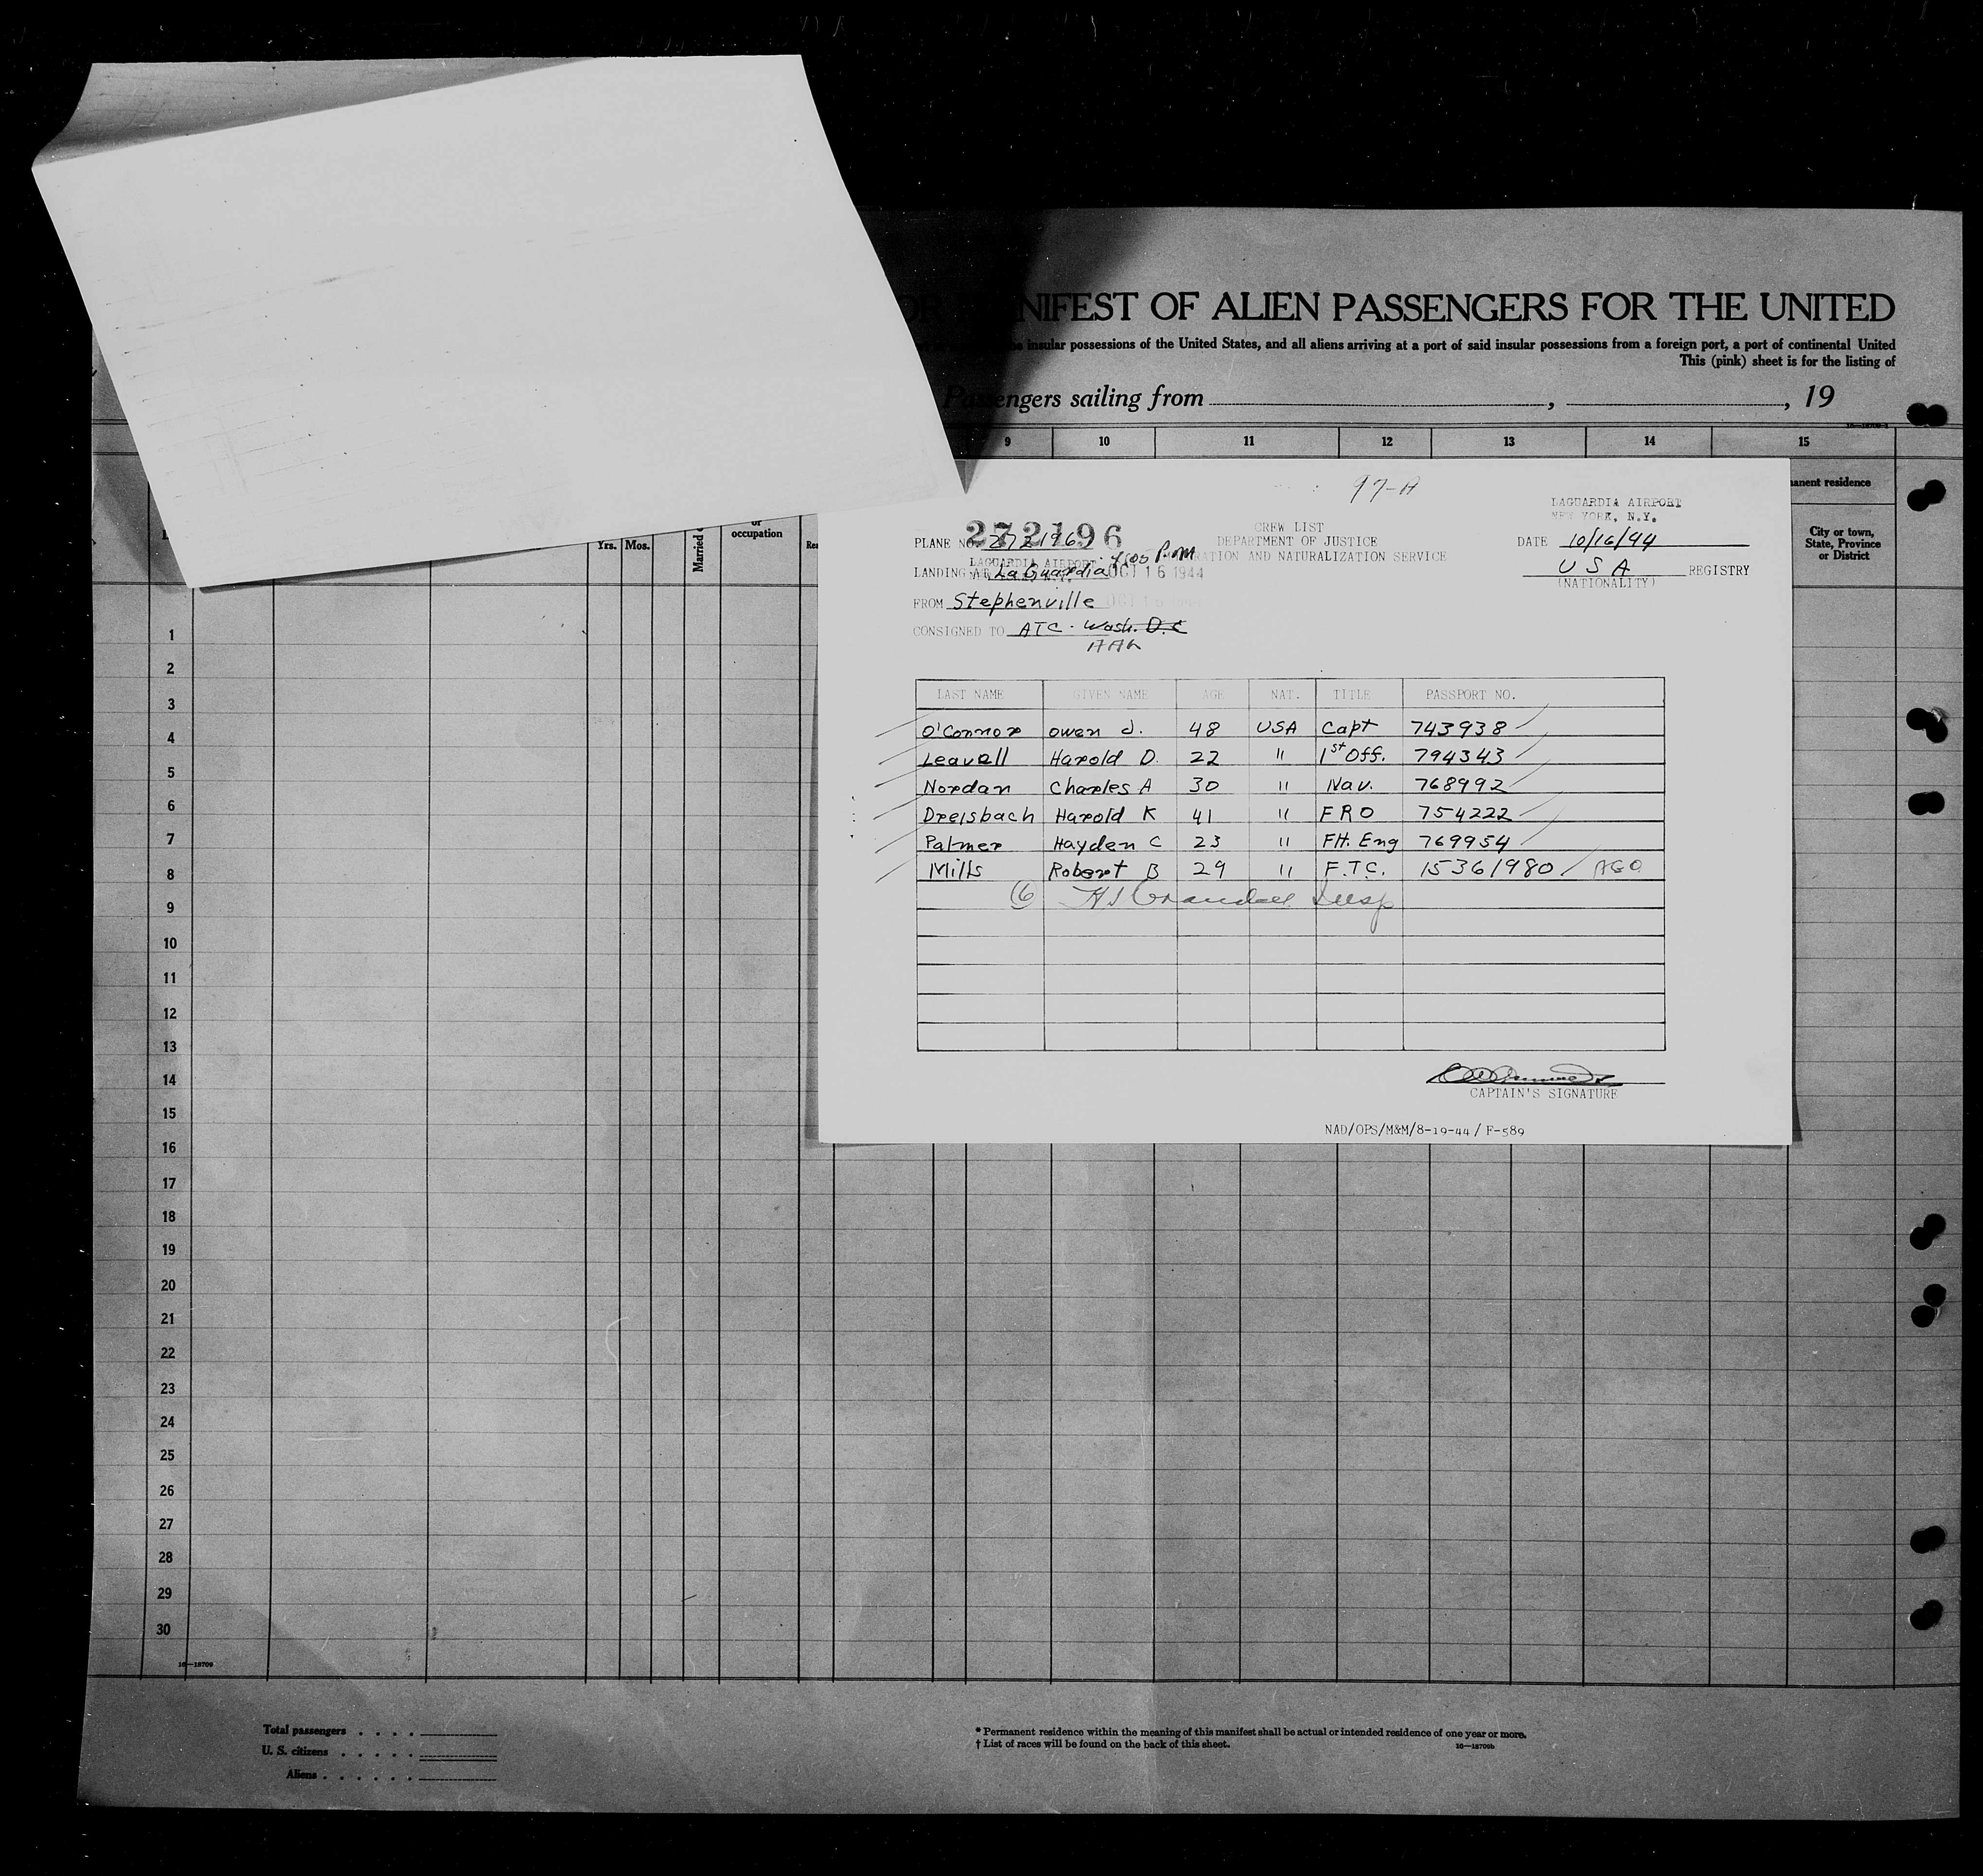 NIFEST OF ALIEN PASSENGERS FOR THE UNITED
insular possessions of the United States, and all aliens arriving at a port of said insular possessions from a foreign port, a port of continental United
This (pink) sheet is for the listing of
Passengers sailing from , , 19
9 10 11 12 13 14 15
97-A
LAGUARDIA AIRPORT
NEW YORK, N.Y.
272196
CREW LIST
PLANE NO. 272196 DEPARTMENT OF JUSTICE DATE 10/16/44
LAGUARDIA AIRPORT P.M. AND NATURALIZATION SERVICE
LANDING AT La Guardia OCT 16 1944 USA REGISTRY
(NATIONALITY)
FROM Stephenville
CONSIGNED TO ATC. Wash. D.C
LAST NAME GIVEN NAME AGE NAT. TITLE PASSPORT NO.
O'Connor Owen J. 48 USA Capt 743938
Leavell Harold D. 22 " 1st Off. 794343
Nordan Charles A 30 " Nav. 768992
Dreisbach Harold K 41 " FRO 754222
Palmer Hayden C 23 " Flt. Eng 769954
Mills Robert B 29 " F.T.C. 15361980 AGO
6 Insp
CAPTAIN'S SIGNATURE
NAD/OPS/M&M/8-19-44 / F-589
anent residence
City or town,
State, Province
or District
Yrs. Mos.
Married
or
occupation
1
2
3
4
5
6
7
8
9
10
11
12
13
14
15
16
17
18
19
20
21
22
23
24
25
26
27
28
29
30
16—18709
Total passengers . . . .
U. S. citizens . . . . .
Aliens . . . . . .
* Permanent residence within the meaning of this manifest shall be actual or intended residence of one year or more.
† List of races will be found on the back of this sheet.
16—18709b